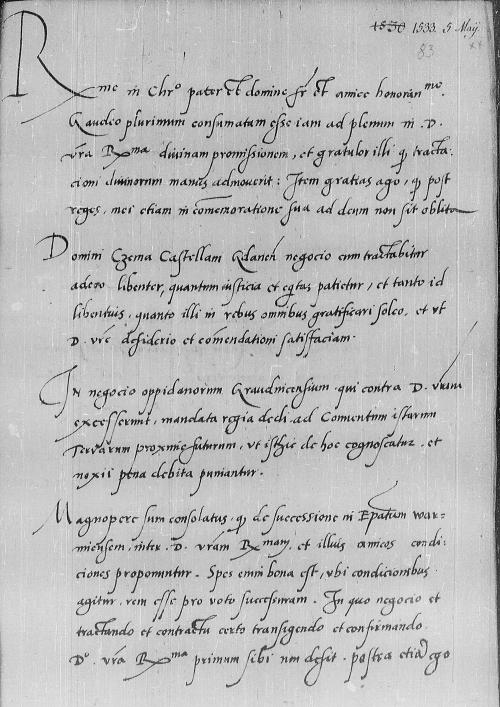 1530 1533. 5 Maij
83
Rme in Chro pater et domine fr et amice honoranme.
Gaudeo plurimum consumatam esse iam ad plenum in D.
vra Rma diuinam promissionem, et gratulor illi q tracta-
cioni diuinorum manus admouerit: Item gratias ago, q post
reges, mei etiam in comemoratione sua ad deum non sit oblita
Domini Czema Castellani Gdaneñ negocio cum tractabitur
adero libenter, quantum iusticia et eqtas patietur, et tanto id
libentius, quanto illi in rebus omnibus gratificari soleo, et vt
D. vre desiderio et comendationi satisfaciam.
In negocio oppidanorum Graudnicensium qui contra D. vram
excesserunt, mandata regia dedi ad Conuentum istarum
Terrarum proxime futurum, vt isthic de hoc cognoscatur et
noxii pena debita puniantur.
Magnopere sum consolatus q de successione in Epatum war-
miensem, inter D. vram Rmam et illius amicos condi-
ciones proponuntur. Spes enim bona est, vbi condicionibus
agitur, rem esse pro voto successuram. In quo negocio et
tractando et contractu certo transigendo et confirmando
Do. vra Rma primum sibi non desit. postea etia ego